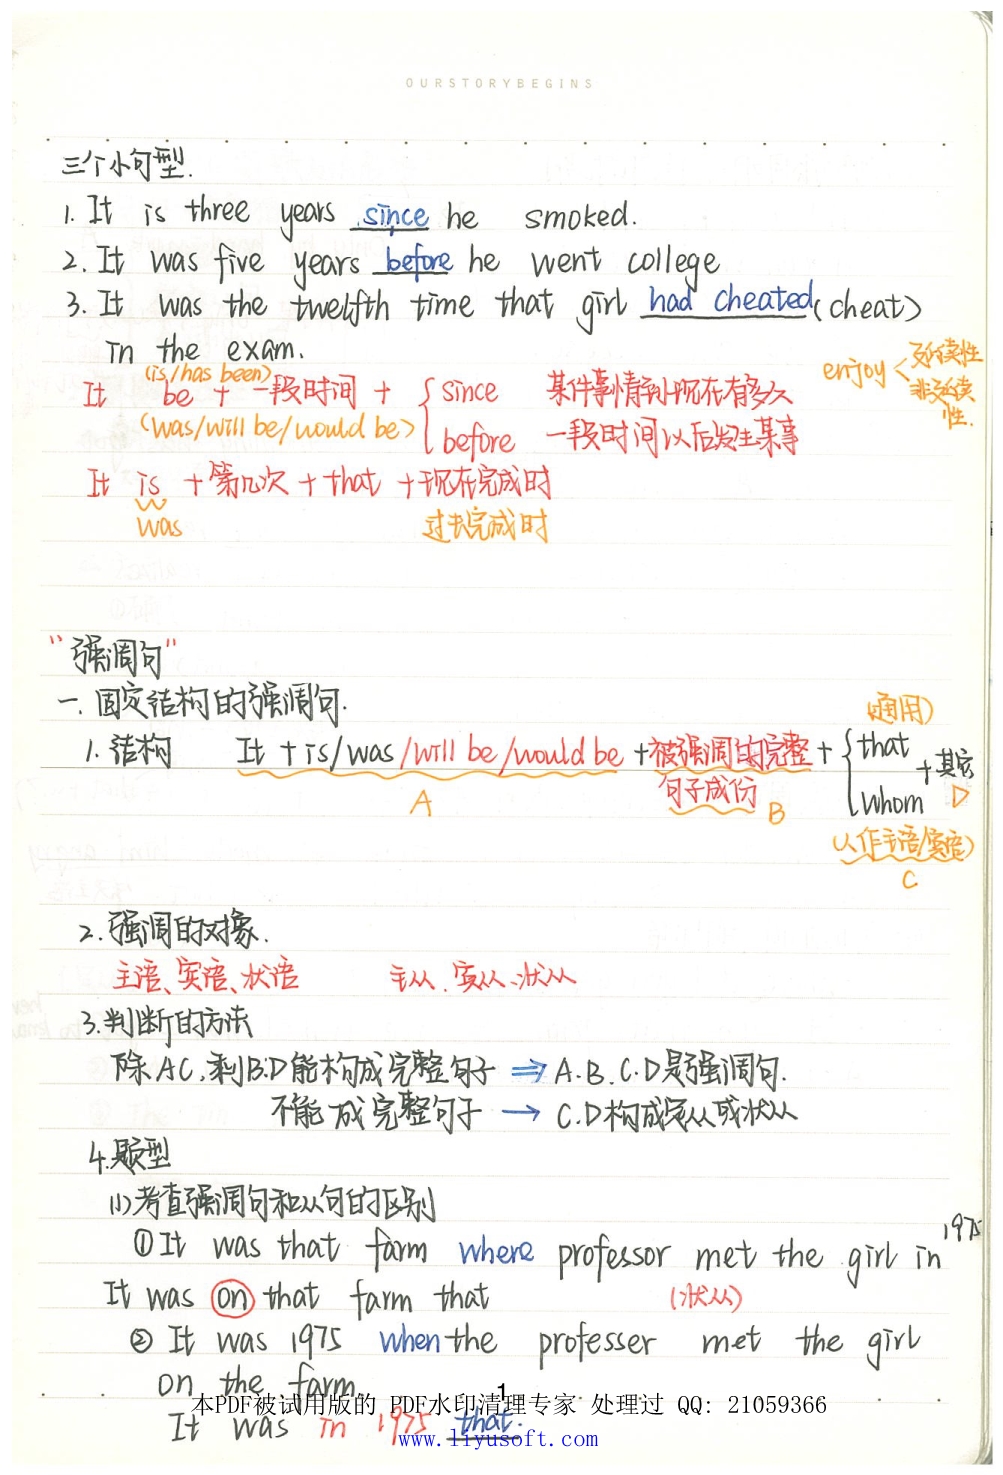 OURSTORYBEGINS
三个小句型.
1. It is three years since he smoked.
2. It was five years before he went college
3. It was the twelfth time that girl had cheated (cheat)
in the exam.
(is/has been)
enjoy < 延续性
非延续性.
It be + 一段时间 + { since 某件事情到现在有多久
(was/will be/would be) before 一段时间以后发生某事
It is + 第几次 + that + 现在完成时
was 过去完成时
"强调句"
一. 固定结构的强调句.
(通用)
1. 结构 It + is/was/will be/would be + 被强调的完整 + { that + 其它
句子成份 whom
A B D
(人作主语/宾语)
C
2. 强调的对象.
主语、宾语、状语 主从、宾从、状从
3. 判断的方法
除AC,剩B.D能构成完整句子 ⇒ A.B.C.D是强调句.
不能成完整句子 → C.D构成定从或状从
4. 题型
(1) 考查强调句和从句的区别
① It was that farm where professor met the girl in 1975
It was on that farm that (状从)
② It was 1975 when the professer met the girl
on the farm.
1
本PDF被试用版的 PDF水印清理专家 处理过 QQ: 21059366
It was in 1975 that.
www.liyusoft.com